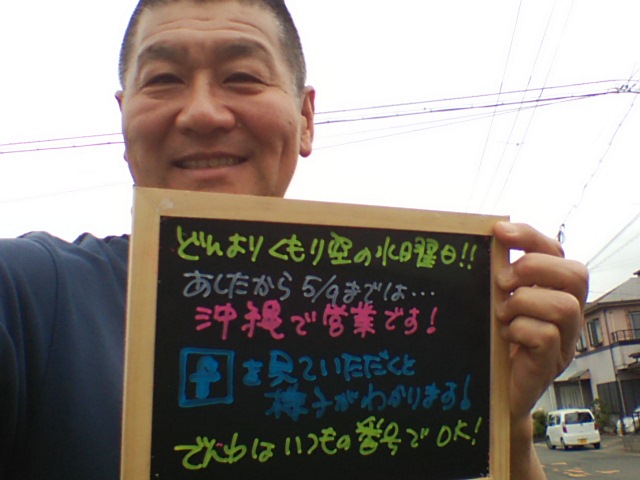 どんよりくもり空の水曜日!!
あしたから5/9までは…
沖縄で営業です!
を見ていただくと
様子がわかります!
でんわはいつもの番号でOK!